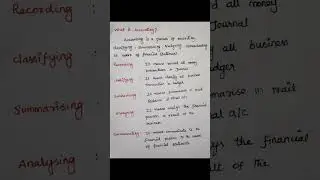 What is Accounting?
Accounting is a process of recording,
classifying, summarising, analysing, communicating
to users of financial statements.
Recording : It means record all money
transaction in Journal
classifying : It means classify all business
transaction in Ledger
Summarising : It means summarise in
Analysing : It means analyse the financial
position & result of the
business
Communicating : It means communicate to the
financial position to the users
of financial statements
Recording :
classifying :
Summarising :
Analysing :
rd all money
Journal
all business
ledger
arise in mail
al a/c
ys the financial
ult of the